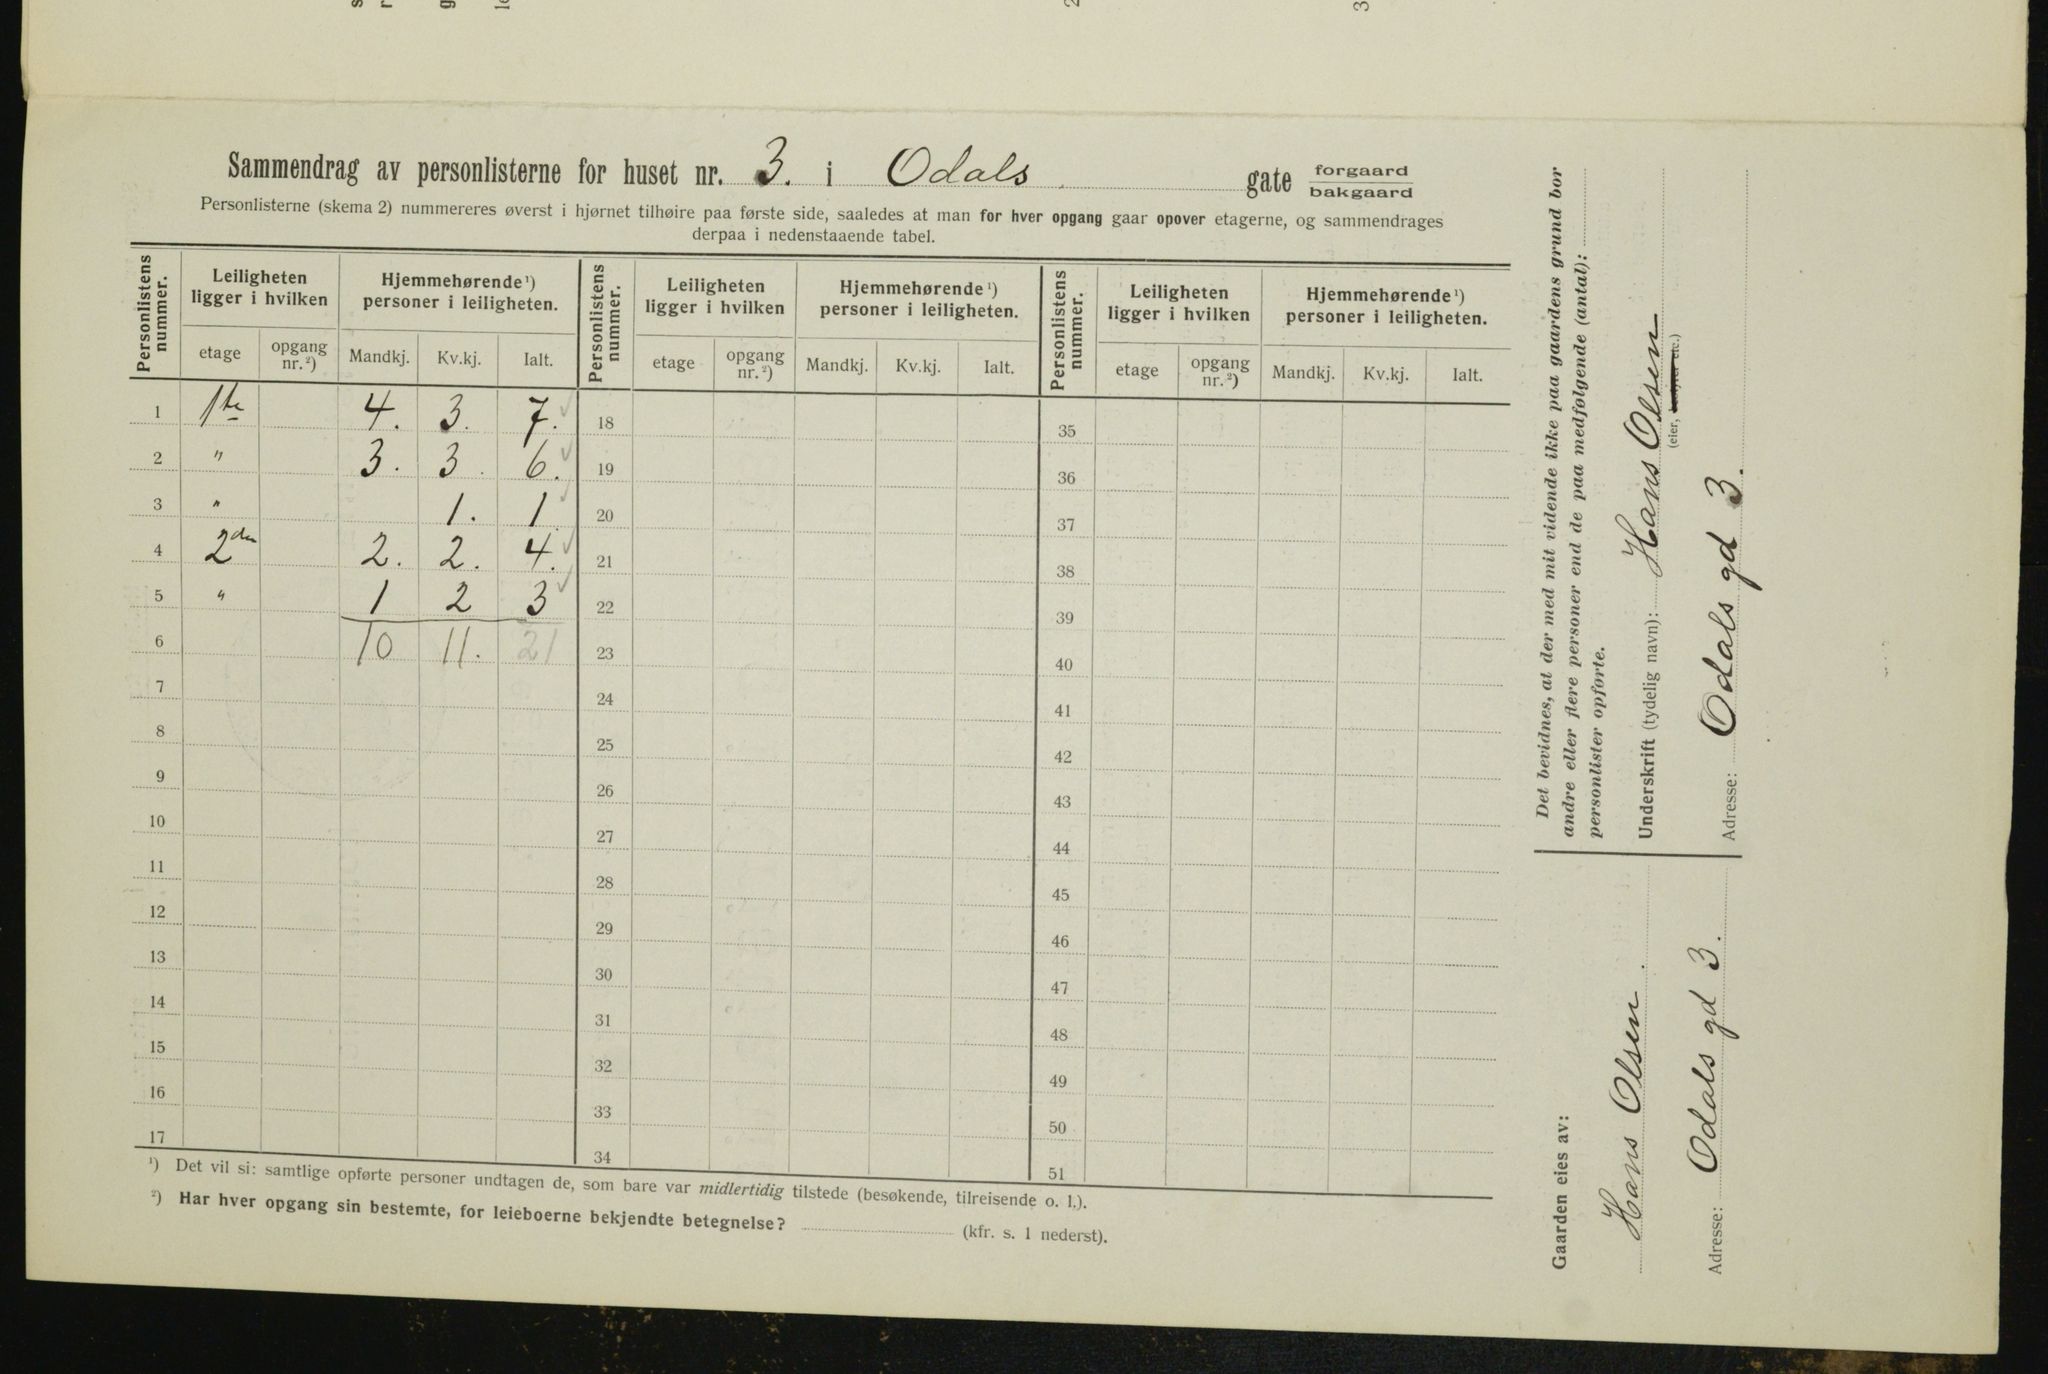 Sammendrag av personlisterne for huset nr. 3. i Odals gate forgaard
bakgaard
Personlisterne (skema 2) nummereres øverst i hjørnet tilhøire paa første side, saaledes at man for hver opgang gaar opover etagerne, og sammendrages
derpaa i nedenstaaende tabel.
Personlistens nummer. Leiligheten ligger i hvilken Hjemmehørende ¹) personer i leiligheten. Personlistens nummer. Leiligheten ligger i hvilken Hjemmehørende ¹) personer i leiligheten. Personlistens nummer. Leiligheten ligger i hvilken Hjemmehørende ¹) personer i leiligheten.
etage opgang nr. ²) Mandkj. Kv.kj. Ialt. etage opgang nr. ²) Mandkj. Kv.kj. Ialt. etage opgang nr. ²) Mandkj. Kv.kj. Ialt.
1 1te 4. 3. 7. ✓ 18 35
2 " 3. 3. 6. ✓ 19 36
3 " 1. 1 ✓ 20 37
4 2den 2. 2. 4. ✓ 21 38
5 " 1 2 3 ✓ 22 39
6 10 11. 21 23 40
7 24 41
8 25 42
9 26 43
10 27 44
11 28 45
12 29 46
13 30 47
14 31 48
15 32 49
16 33 50
17 34 51
¹) Det vil si: samtlige opførte personer undtagen de, som bare var midlertidig tilstede (besøkende, tilreisende o. l.).
²) Har hver opgang sin bestemte, for leieboerne bekjendte betegnelse? (kfr. s. 1 nederst).
Det bevidnes, at der med mit vidende ikke paa gaardens grund bor
andre eller flere personer end de paa medfølgende (antal):
personlister opførte.
Underskrift (tydelig navn): Hans Olsen
(eier, bestyrer etc.)
Adresse: Odals gd 3.
Gaarden eies av:
Hans Olsen.
Adresse: Odals gd 3.